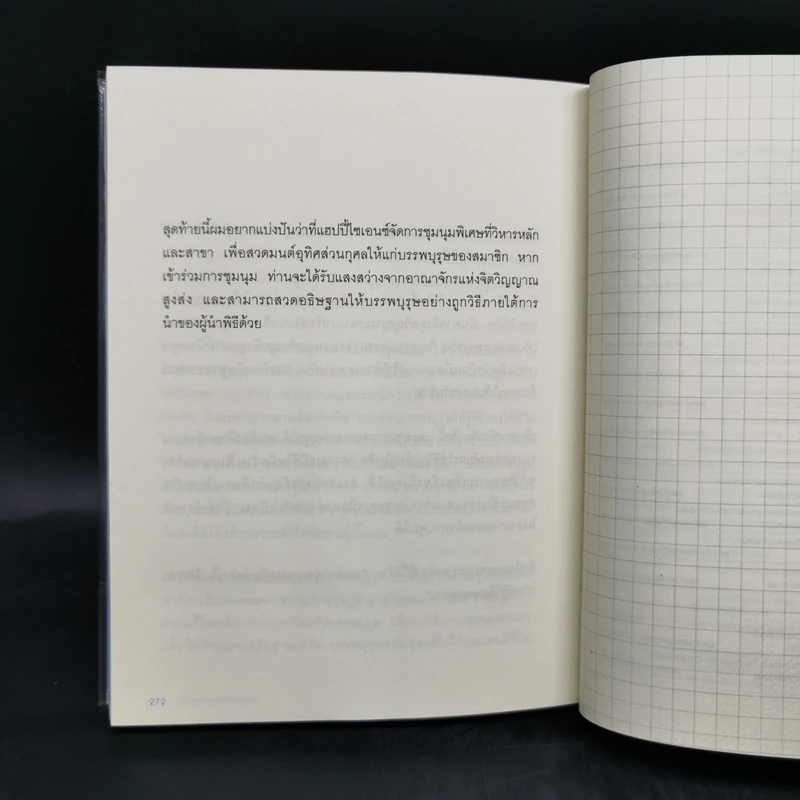 สุดท้ายนี้ผมอยากแบ่งปันว่าที่แฮปปี้ไซเอนซ์จัดการชุมนุมพิเศษที่วิหารหลัก
และสาขา เพื่อสวดมนต์อุทิศส่วนกุศลให้แก่บรรพบุรุษของสมาชิก หาก
เข้าร่วมการชุมนุม ท่านจะได้รับแสงสว่างจากอาณาจักรแห่งจิตวิญญาณ
สูงส่ง และสามารถสวดอธิษฐานให้บรรพบุรุษอย่างถูกวิธีภายใต้การ
นำของผู้นำพิธีด้วย
272